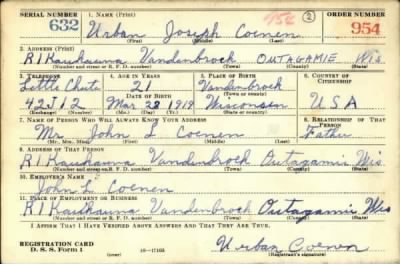 SERIAL NUMBER 1. NAME (Print) ORDER NUMBER
632 Urban Joseph Coenen 954 2 954
(First) (Middle) (Last)
2. ADDRESS (Print)
R1 Kaukauna Vandenbrock OUTAGAMIE Wis
(Number and street or R. F. D. number) (Town) (County) (State)
3. TELEPHONE 4. AGE IN YEARS 5. PLACE OF BIRTH 6. COUNTRY OF CITIZENSHIP
Little Chute 21 Vandenbrock
DATE OF BIRTH
42J12 Mar 28 1919 Wisconsin USA
7. NAME OF PERSON WHO WILL ALWAYS KNOW YOUR ADDRESS 8. RELATIONSHIP OF THAT PERSON
Mr. John L Coenen Father
(Mr., Mrs., Miss) (First) (Middle) (Last)
9. ADDRESS OF THAT PERSON
R1 Kaukauna Vandenbrock Outagamie Wis.
(Number and street or R. F. D. number) (Town) (County) (State)
10. EMPLOYER'S NAME
John L. Coenen
11. PLACE OF EMPLOYMENT OR BUSINESS
R1 Kaukauna Vandenbrock Outagamie Wis
(Number and street or R. F. D. number) (Town) (County) (State)
I AFFIRM THAT I HAVE VERIFIED ABOVE ANSWERS AND THAT THEY ARE TRUE.
REGISTRATION CARD
D. S. S. Form 1 (over) Urban Coenen